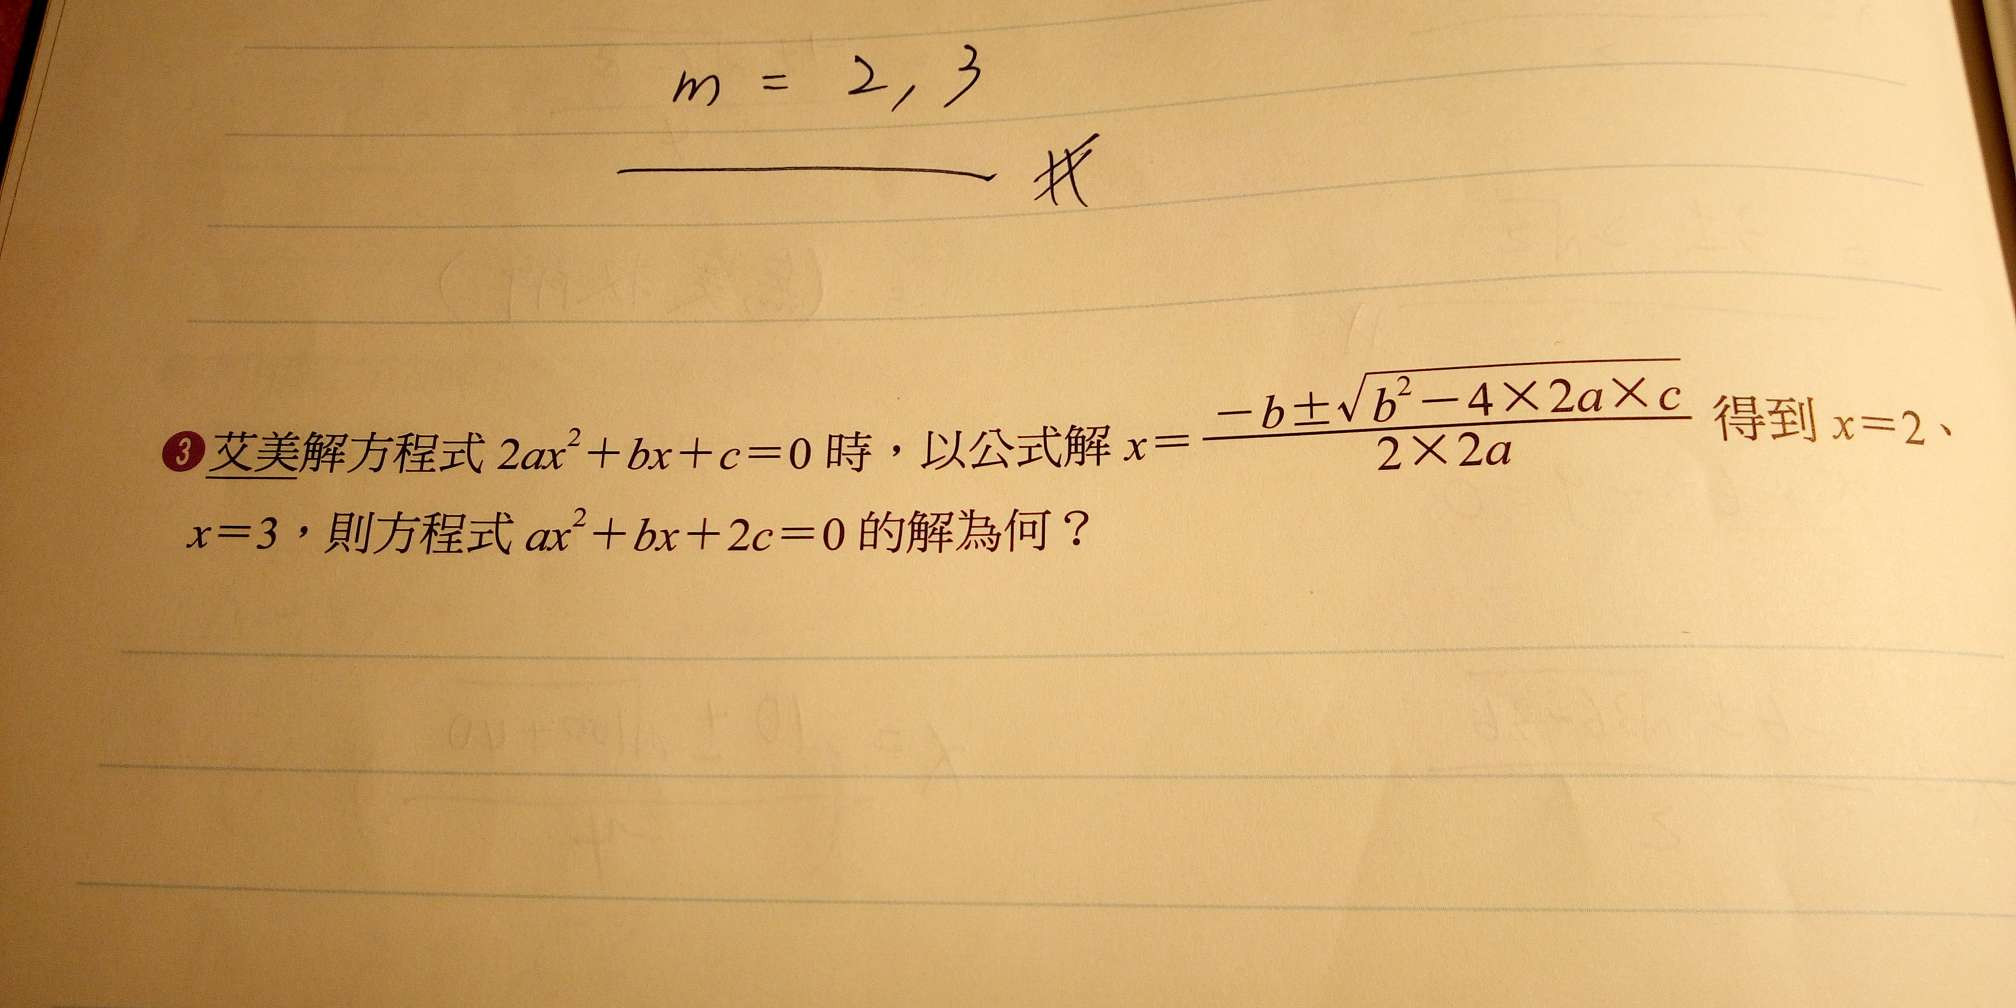 m = 2, 3
#
❸艾美解方程式 2ax²+bx+c=0 時，以公式解 x=\frac{-b±\sqrt{b²-4×2a×c}}{2×2a} 得到 x=2、
x=3，則方程式 ax²+bx+2c=0 的解為何？